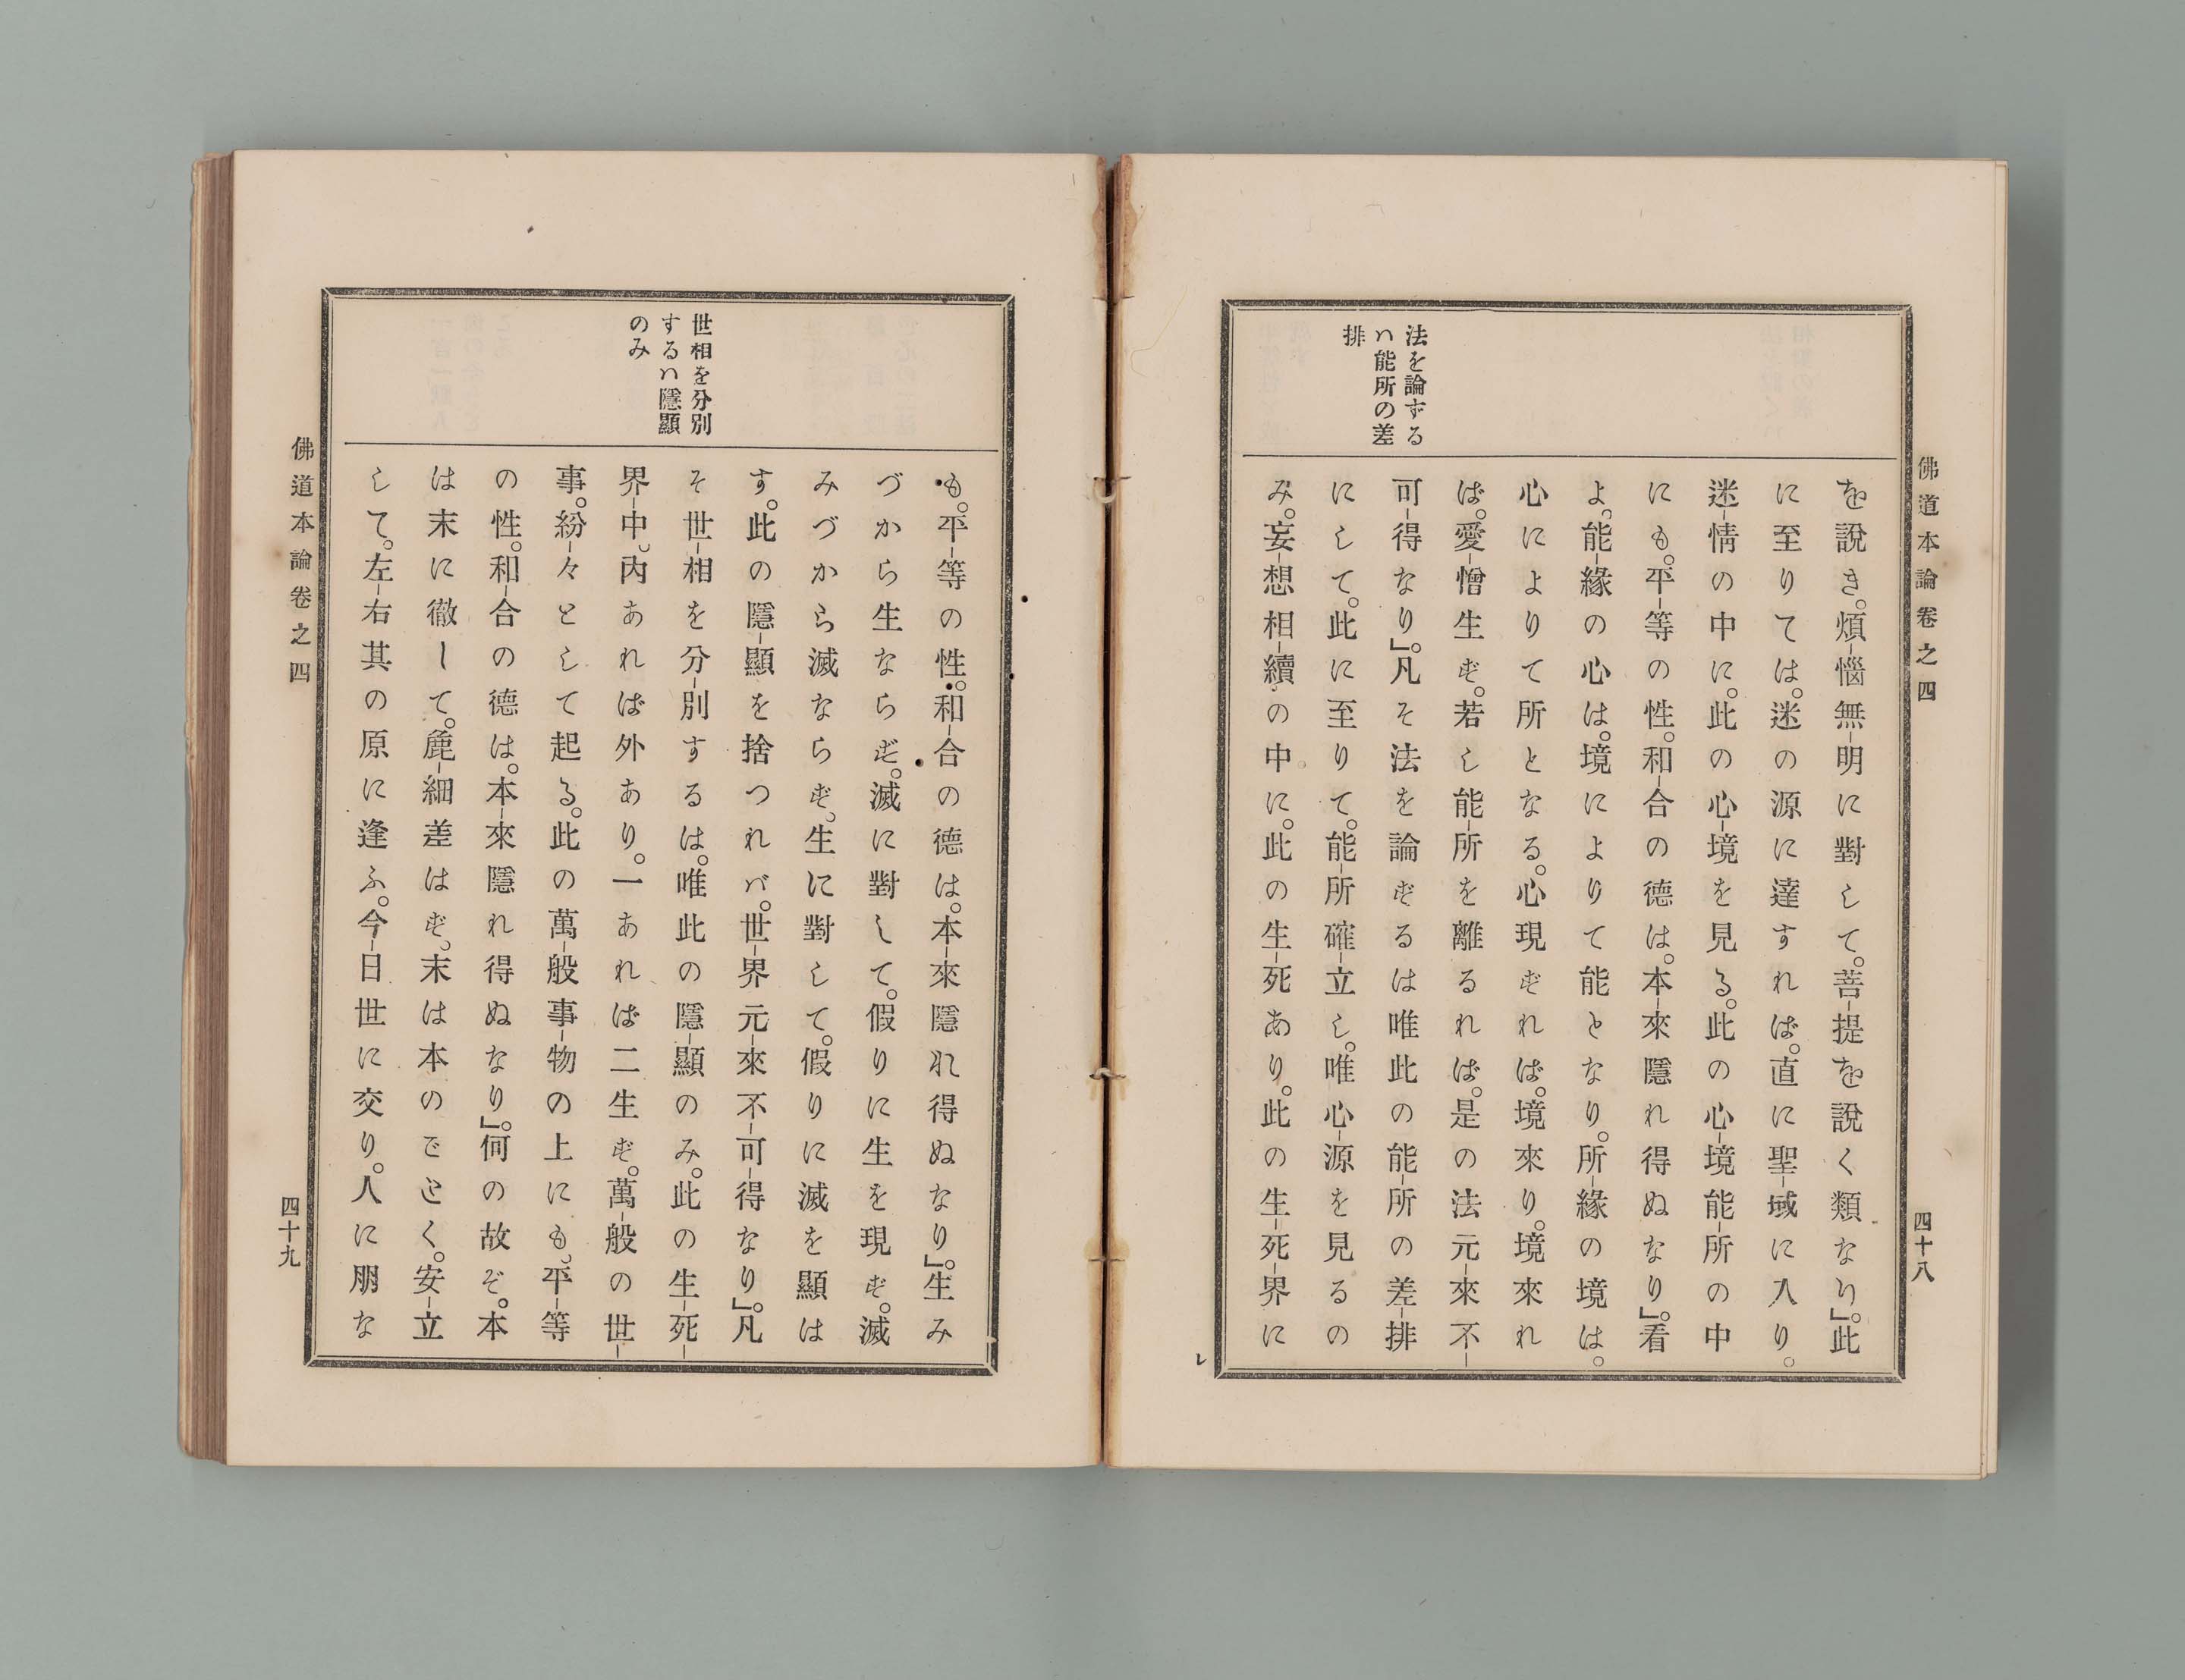 佛道本論卷之四
四十八
法を論ずる
ハ能所の差
排
を說き。煩-惱無-明に對して。菩-提を說く類なり」。此
に至りては。迷の源に達すれば。直に聖-域に入り。
迷-情の中に。此の心-境を見る。此の心-境能-所の中
にも。平-等の性。和-合の德は。本-來隱れ得ぬなり」。看
よ。能-緣の心は。境によりて能となり。所-緣の境は。
心によりて所となる。心現ずれば。境來り。境來れ
ば。愛-憎生ず。若し能-所を離るれば。是の法元-來不-
可-得なり」。凡そ法を論ずるは唯此の能-所の差-排
にして。此に至りて。能-所確-立し。唯心-源を見るの
み。妄-想相-續の中に。此の生-死あり。此の生-死-界に
世相を分別
するハ隱顯
のみ
も。平-等の性。和-合の德は。本-來隱れ得ぬなり」。生み
づから生ならず。滅に對して。假りに生を現ず。滅
みづから滅ならず。生に對して。假りに滅を顯は
す。此の隱-顯を捨つれバ。世-界元-來不-可-得なり」。凡
そ世-相を分-別するは。唯此の隱-顯のみ。此の生-死-
界-中。內あれば外あり。一あれば二生ず。萬-般の世-
事。紛-々として起る。此の萬-般事-物の上にも。平-等
の性。和-合の德は。本-來隱れ得ぬなり」。何の故ぞ。本
は末に徹して。麁-細差はず。末は本のごとく。安-立
して。左-右其の原に逢ふ。今-日世に交り。人に朋な
佛道本論卷之四
四十九